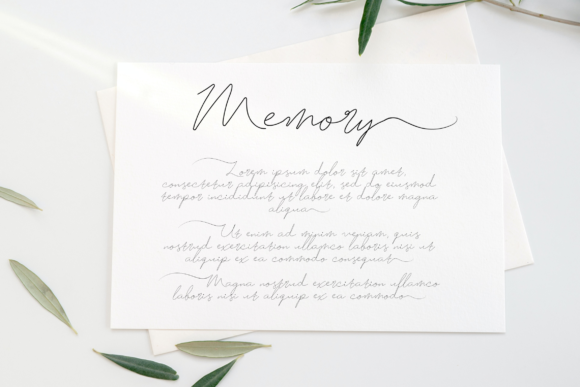 Memory
Lorem ipsum dolor sit amet,
consectetur adipisicing elit, sed do eiusmod
tempor incididunt ut labore et dolore magna
aliqua
Ut enim ad minim veniam, quis
nostrud exercitation ullamco laboris nisi ut
aliquip ex ea commodo consequat
Magna nostrud exercitation ullamco
laboris nisi ut aliquip ex ea commodo